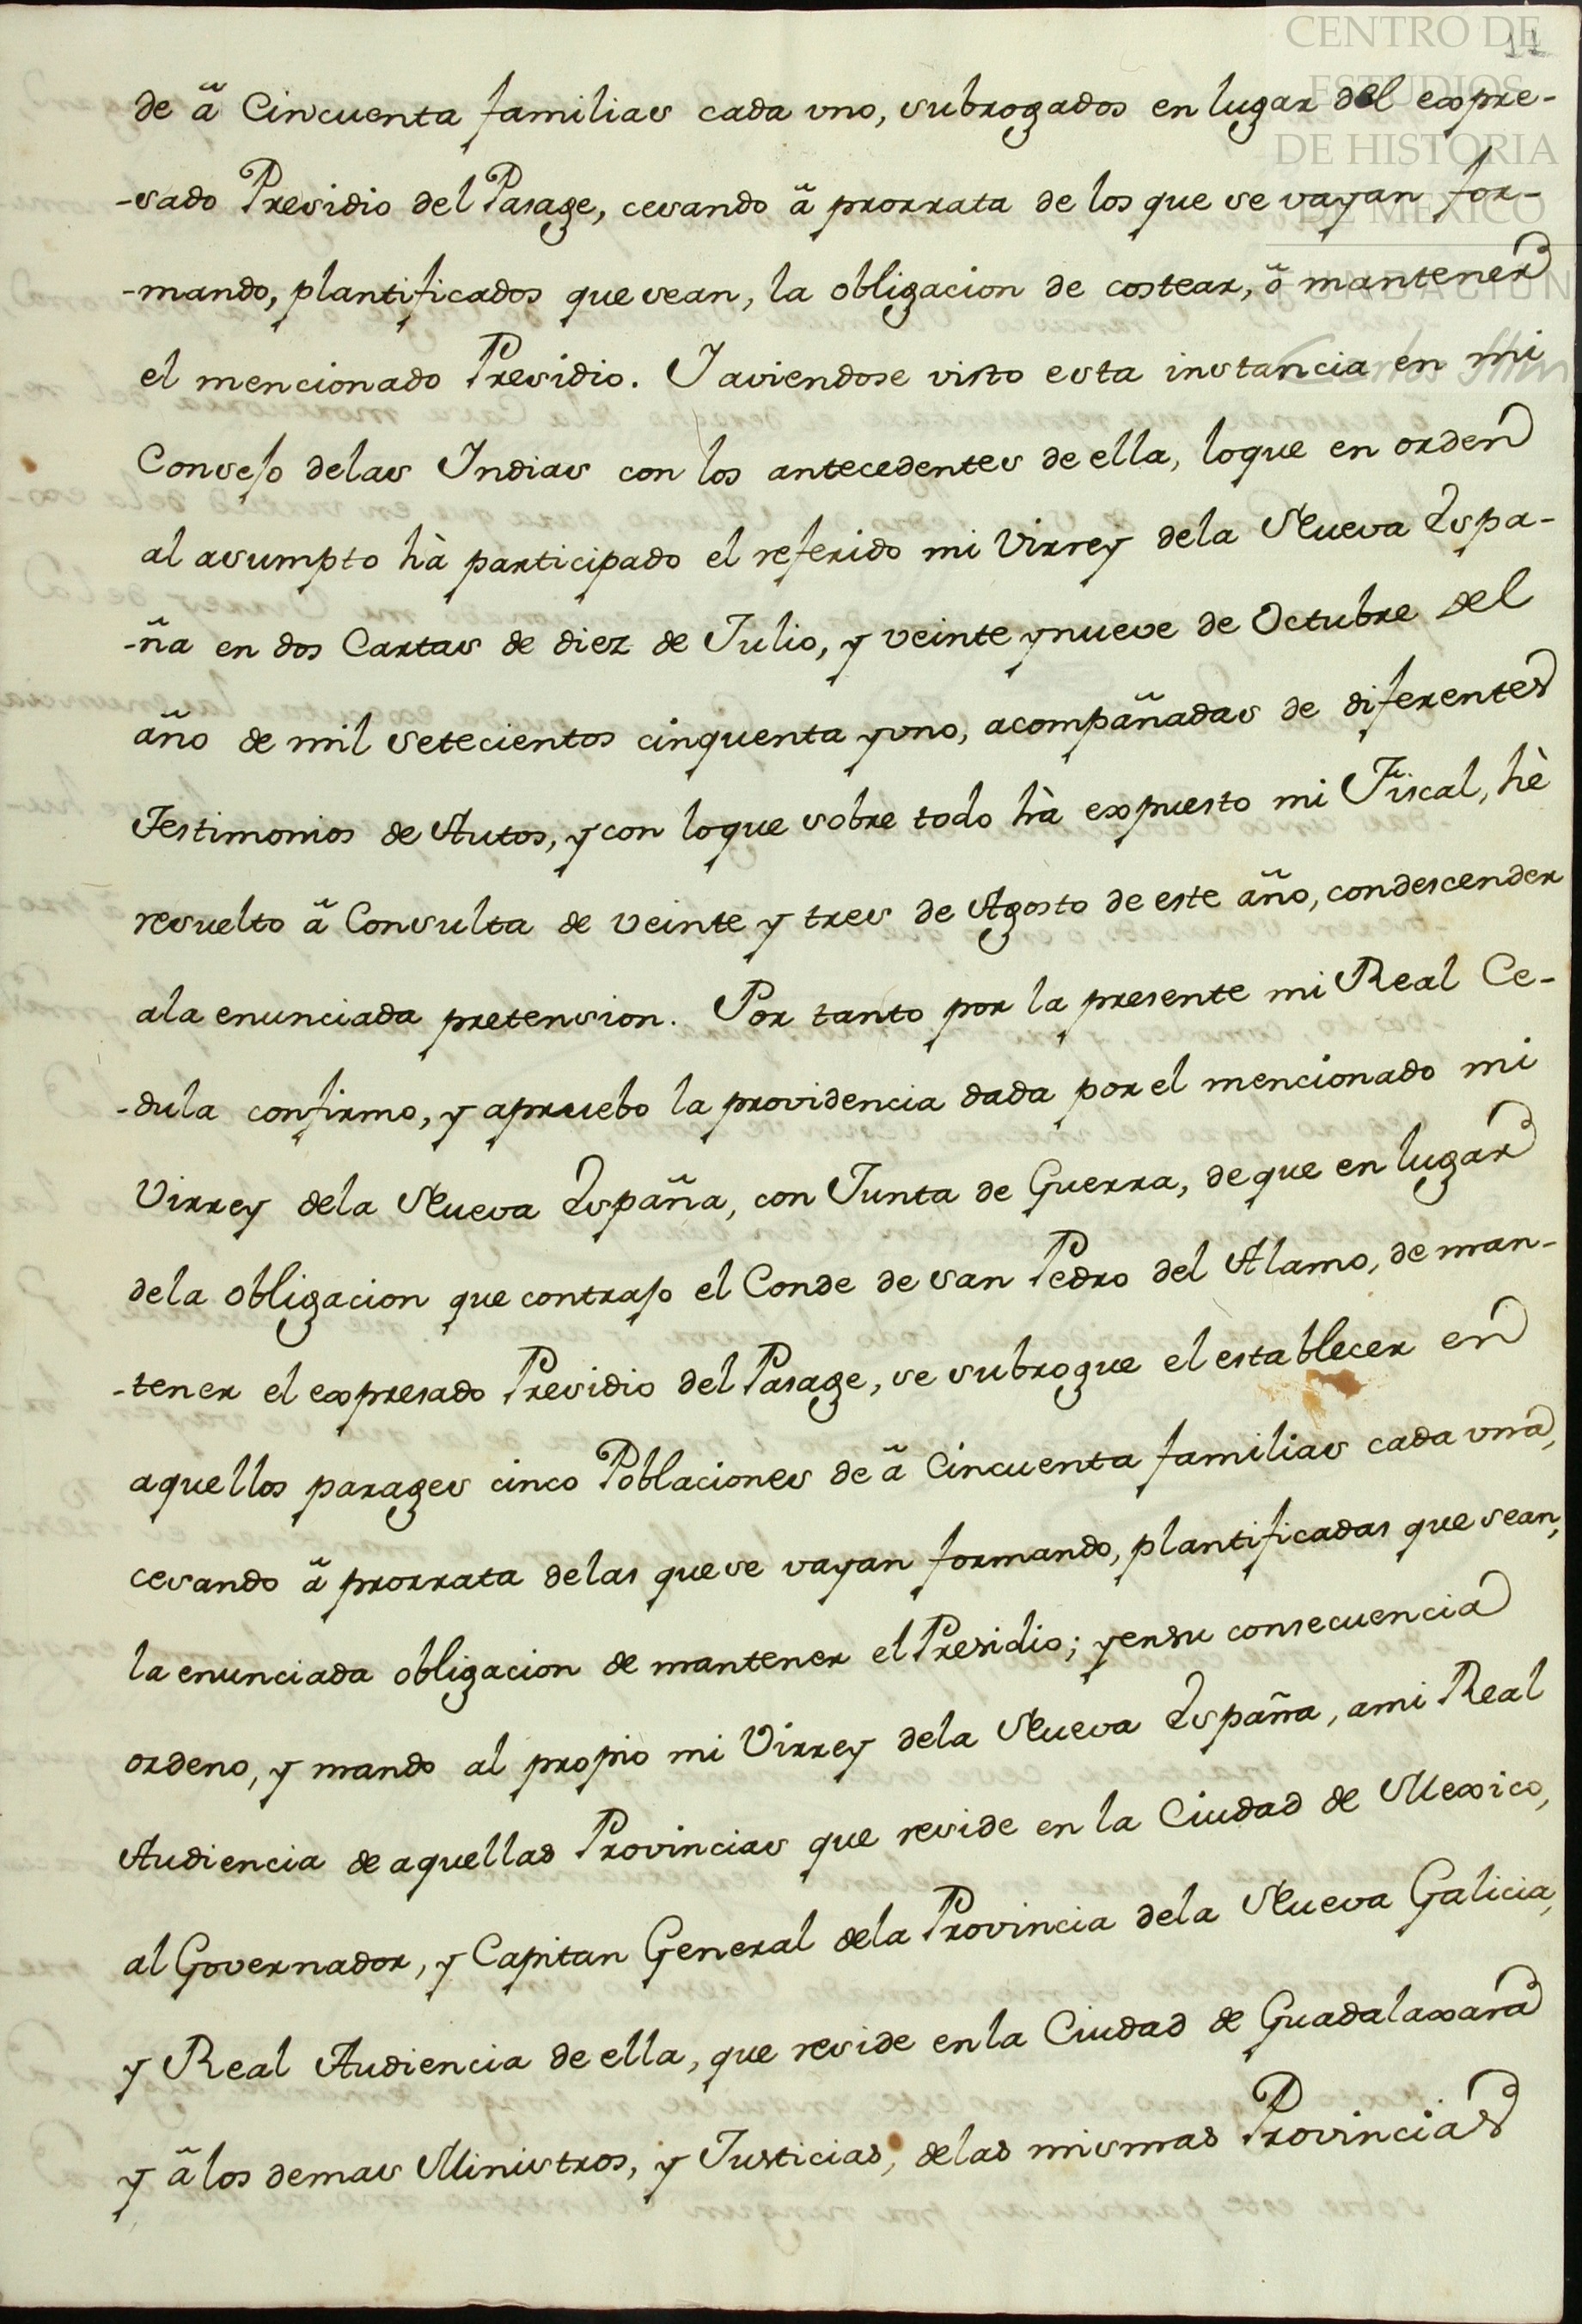 CENTRO DE
ESTUDIOS
DE HISTORIA
DE MEXICO
FUNDACIÓN
Carlos Slim
11
de â Cincuenta familias cada vno, subrogados en lugar del expre-
-sado Presidio del Pasage, cesando â prorrata de los que se vayan for-
-mando, plantificados que sean, la obligacion de costear, ô mantener
el mencionado Presidio. Y aviendose visto esta instancia en mi
Consejo delas Indias con los antecedentes de ella, loque en orden
al asumpto hà participado el referido mi Virrey dela Nueva Espa-
-ña en dos Cartas de diez de Julio, y veinte ynueve de Octubre del
año de mil setecientos cinquenta yvno, acompañadas de diferentes
Testimonios de Autos, y con loque sobre todo hà expuesto mi Fiscal, hè
resuelto â Consulta de veinte y tres de Agosto de este año, condescender
ala enunciada pretension. Por tanto por la presente mi Real Ce-
-dula confirmo, y apruebo la providencia dada por el mencionado mi
Virrey dela Nueva España, con Junta de Guerra, de que en lugar
dela obligacion que contrajo el Conde de san Pedro del Alamo, de man-
-tener el expresado Presidio del Pasage, se subrogue el establecer en
aquellos parages cinco Poblaciones de â Cincuenta familias cada vna,
cesando â prorrata delas que se vayan formando, plantificadas que sean,
la enunciada obligacion de mantener el Presidio; y ensu consecuencia
ordeno, y mando al propio mi Virrey dela Nueva España, ami Real
Audiencia de aquellas Provincias que reside en la Ciudad de Mexico,
al Governador, y Capitan General dela Provincia dela Nueva Galicia,
y Real Audiencia de ella, que reside enla Ciudad de Guadalaxara
y â los demas Ministros, y Justicias, delas mismas Provincias